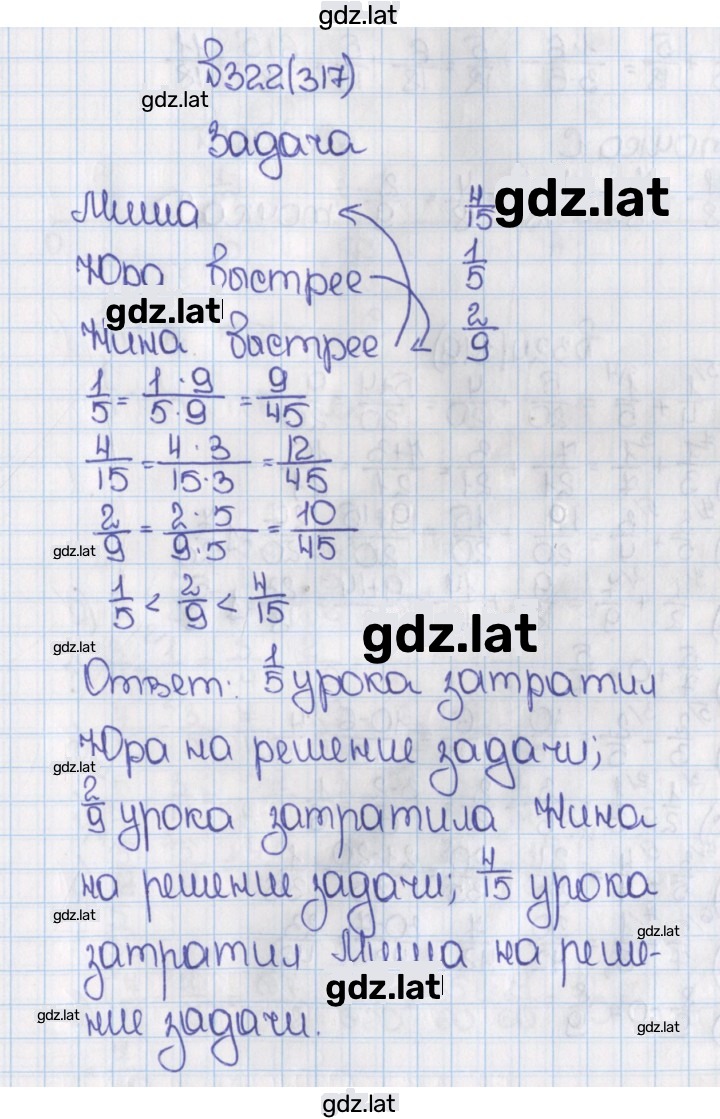 gdz.lat
в322(317)
gdz.lat
Задача
Миша 4/15 gdz.lat
Юра быстрее 1/5
gdz.lat
Нина быстрее 2/9
1/5 = 1·9/5·9 = 9/45
4/15 = 4·3/15·3 = 12/45
2/9 = 2·5/9·5 = 10/45
gdz.lat
1/5 < 2/9 < 4/15
gdz.lat
gdz.lat
Ответ: 1/5 урока затратил
Юра на решение задачи;
gdz.lat
2/9 урока затратила Нина
на решение задачи; 4/15 урока
gdz.lat
gdz.lat
затратил Миша на реше-
gdz.lat
ние задачи.
gdz.lat
gdz.lat
gdz.lat